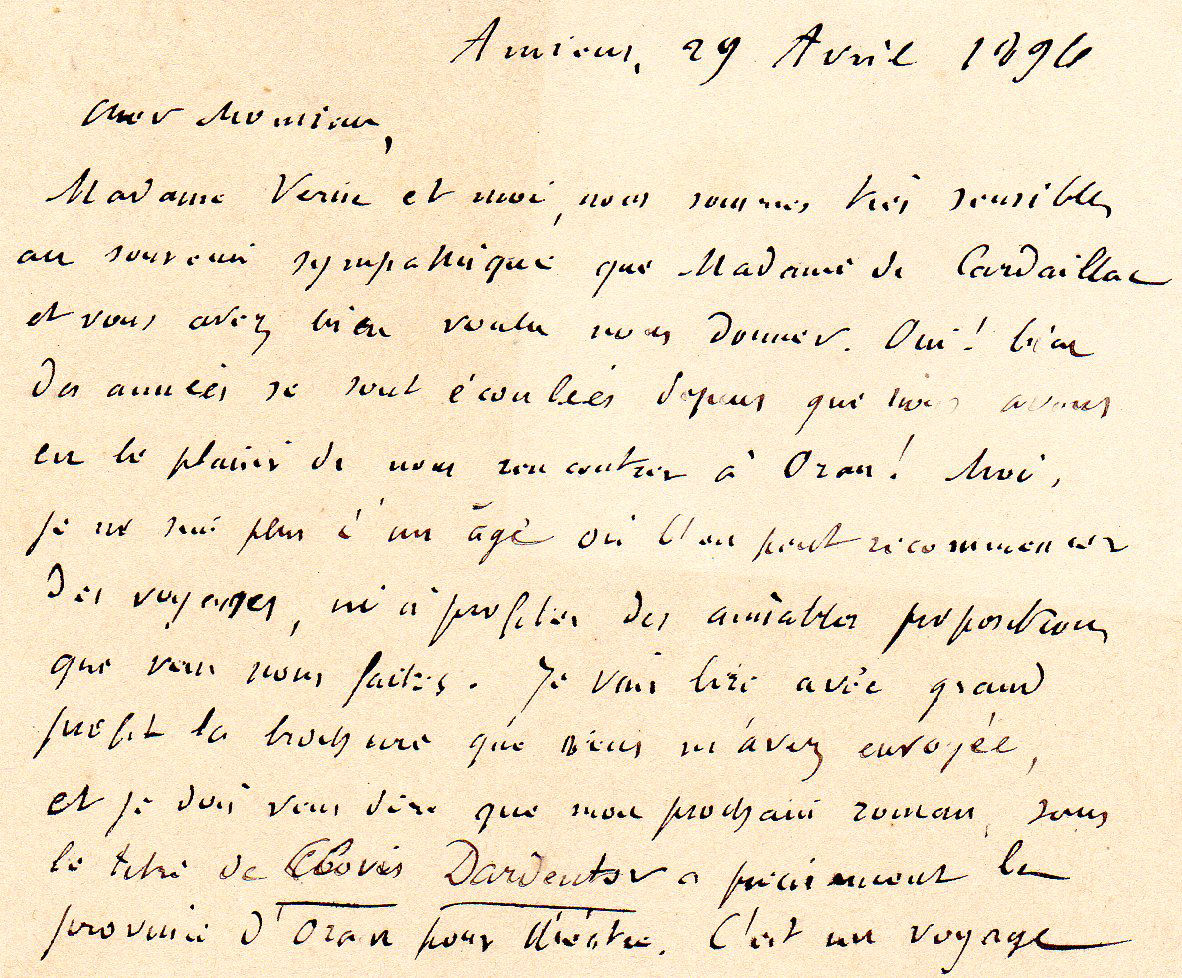 Amiens, 29 Avril 1896
Cher Monsieur,
Madame Verne et moi, nous sommes très sensibles
au souvenir sympathique que Madame de Cardaillac
et vous avez bien voulu nous donner. Oui! bien
des années se sont écoulées depuis que nous avons
eu le plaisir de nous rencontrer à Oran! Moi,
je ne suis plus à un âge où l'on peut recommencer
des voyages, ni à profiter des aimables propositions
que vous nous faites. Je vais lire avec grand
profit la brochure que vous m'avez envoyée,
et je dois vous dire que mon prochain roman, sous
le titre de Clovis Dardentor a précisément la
province d'Oran pour théâtre. C'est un voyage